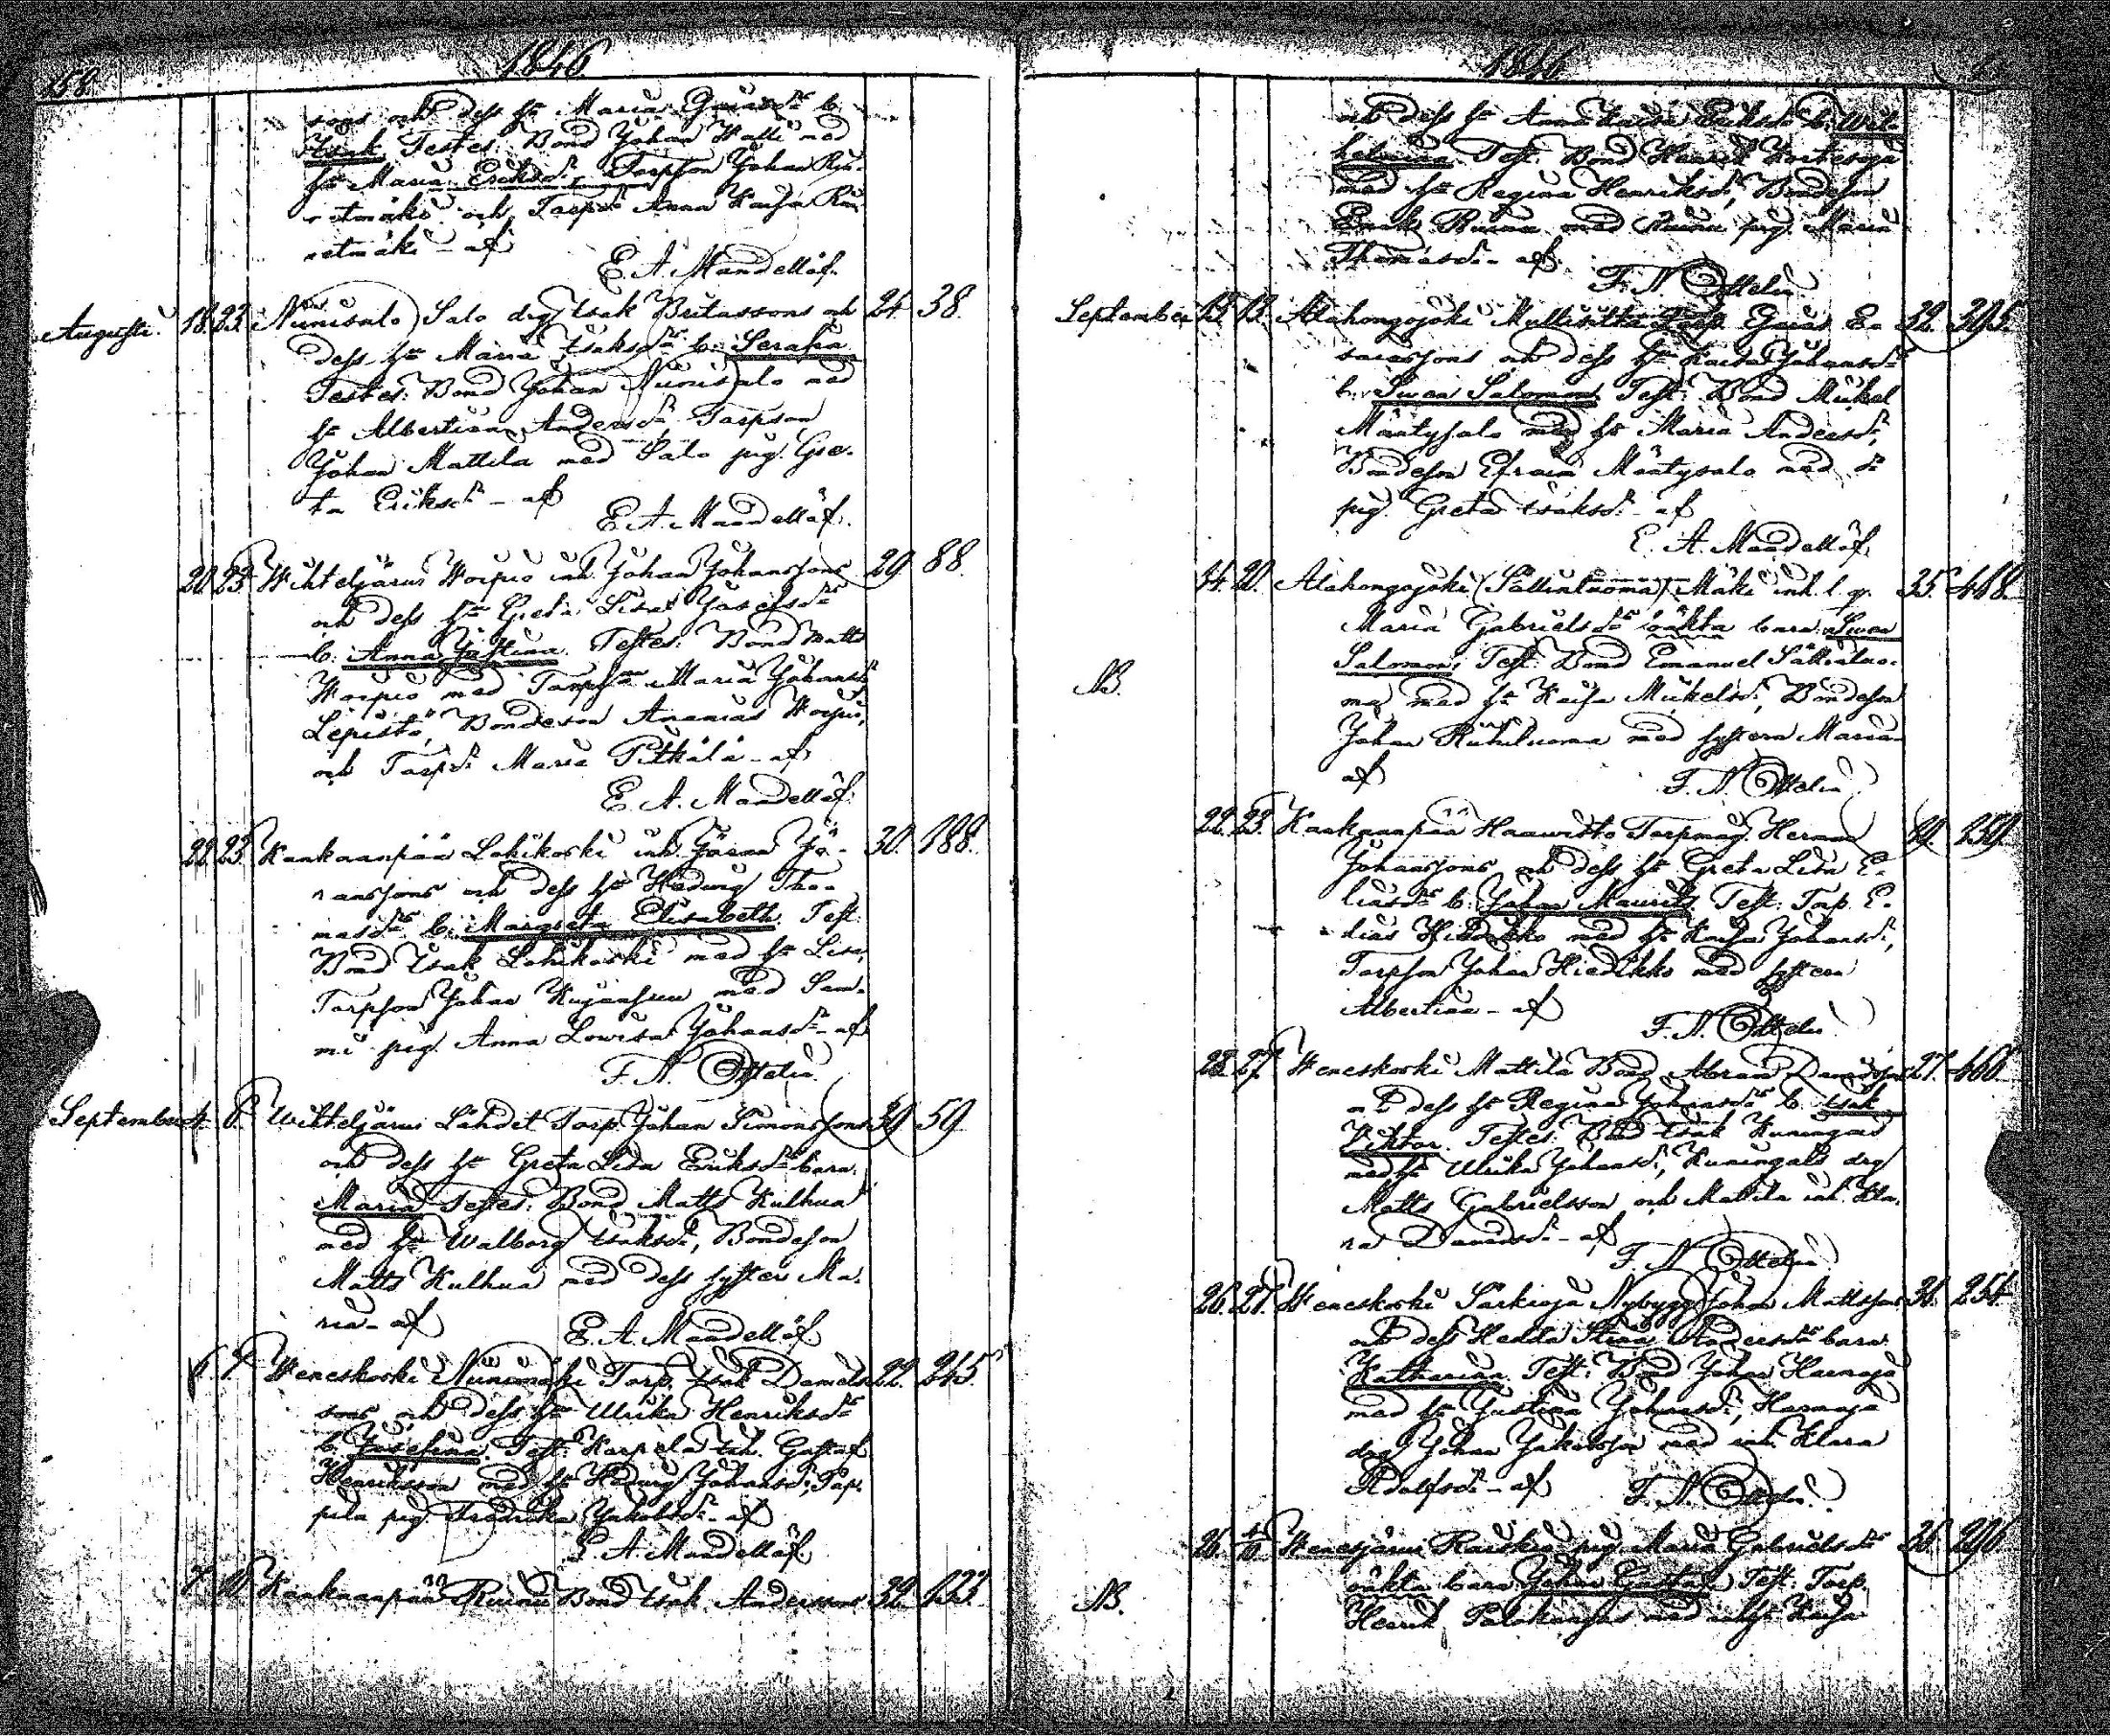 158.
1846
sons och dess h:u Maria Gustafsd:r b.
Isak Testes: Bond Johan Walli med
h:u Maria Eriksd:r, Torpson Johan
och Torpd:r Anna Kaisa
af
E. A. Mandellöf.
Augusti. 18. 23. Niinisalo Salo drg Isak Britassons och 24. 38.
dess h:u Maria Isaksd:rs b: Serafia
Testes: Bond Johan Niinisalo med
h:u Albertina Andersd:r, Torpson
Johan Mattila med Salo pig. Gre-
ta Eriksd:r - af
E. A. Mandellöf.
20. 23. Wihteljärvi Worpio inh. Johan Johanssons 29. 88.
och dess h:u Greta Lisa Josefsd:rs
b: Anna Justina. Testes: Bond Matts
Worpio med Maria Johansd:r
Lepistö, Bondeson Ananias Worpio,
och Torpd:r Maria Pitkälä - af
E. A. Mandellöf.
22. 23. Kankaanpää Lohikoski inh. Jöran Jö- 30. 188.
ranssons och dess h:u Hedwig Tho-
masd:rs b: Margreta Elisabeth Test:
Bond Isak Lohikoski med h:u Lisa,
Torpson Johan Kujansuu med Sam-
mi pig. Anna Lovisa Johansd:r - af
F. N. Ottelin.
September 4. 6. Wihteljärvi Lähdet Torp. Johan Simonssons 39. 59.
och dess h:u Greta Lisa Eriksd:rs barn:
Maria Testes: Bond Matts Kulhua
med h:u Walborg Isaksd:r, Bondeson
Matts Kulhua med dess syster Ma-
ria - af
E. A. Mandellöf
6. 7. Weneskoski Niinimäki Torp. Isak Daniels- 22. 245.
sons och dess h:u Ulrika Henriksd:rs
b. Josefina. Test: Karpela inh. Gustaf
Henriksson med h:u Hedwig Johansd:r, Pap-
pila pig. Fredrika Jakobsd:r - af
E. A. Mandellöf
7. Kankaanpää Ruinu Bond Isak Anderssons 32. 123.
1846
och dess h:u Anna Kaisa Eriksd:rs b: Wil-
helmina Test: Bond Henrik Kortesoja
med h:u Regina Henriksd:r, Bondeson
Erik Ruinu med Ruinu pig. Maria
Thomasd:r - af
F. N. Ottelin
September 13. 13. Alahongojoki Myllisilta Torp. Gust. E- 32. 305.
saiassons och dess h:u Kaisa Johansd:rs
b: Swen Salomon Test: Bond Mickel
Mäntysalo med h:u Maria Andersd:r,
Bondeson Efraim Mäntysalo med
pig. Greta Isaksd:r - af
E. A. Mandellöf
14. 20. Alahongojoki (Sällinluoma) Mäki inh. l. q. 35. 468.
Maria Gabrielsd:rs oäkta barn: Swen
NB. Salomon, Test: Bond Emanuel Sällinluo-
ma med h:u Kaisa Mickelsd:r, Bondeson
Johan Riihiluoma med systern Maria
af
F. N. Ottelin
22. 23. Kankaanpää Haawisto Torpmåg Herman 259.
Johanssons och dess h:u Greta Lisa E-
liasd:rs b: Johan Maurits. Test: Torp. E-
lias Hietikko med h:u Kaisa Johansd:r,
Torpson Johan Hietikko med systern
Albertina - af
F. N. Ottelin
23. 27. Weneskoski Mattila Bond Abram Davidssons 27. 460.
och dess h:u Regina Johansd:rs b. Isak
Viktor. Testes: Bond Isak Kuningas
med h:u Ulrika Johansd:r, Kuningas drg
Matts Gabrielsson och Mattila inh. Kla-
ra Davidsd:r - af
F. N. Ottelin
26. 27. Weneskoski Särkioja Nybygg. Johan Mattssons 254.
och dess Hedda Stina Andersd:rs barn:
Katharina Test: Bond Johan Harnoja
med h:u Justina Johansd:r, Harnoja
drg Johan Jakobsson med inh. Klara
Adolfsd:r - af
F. N. Ottelin.
26. Wenesjärvi Raiskio pig. Maria Gabrielsd:rs 36. 296.
NB. oäkta barn Johan Gustaf Test: Torp.
Henrik med Kaisa